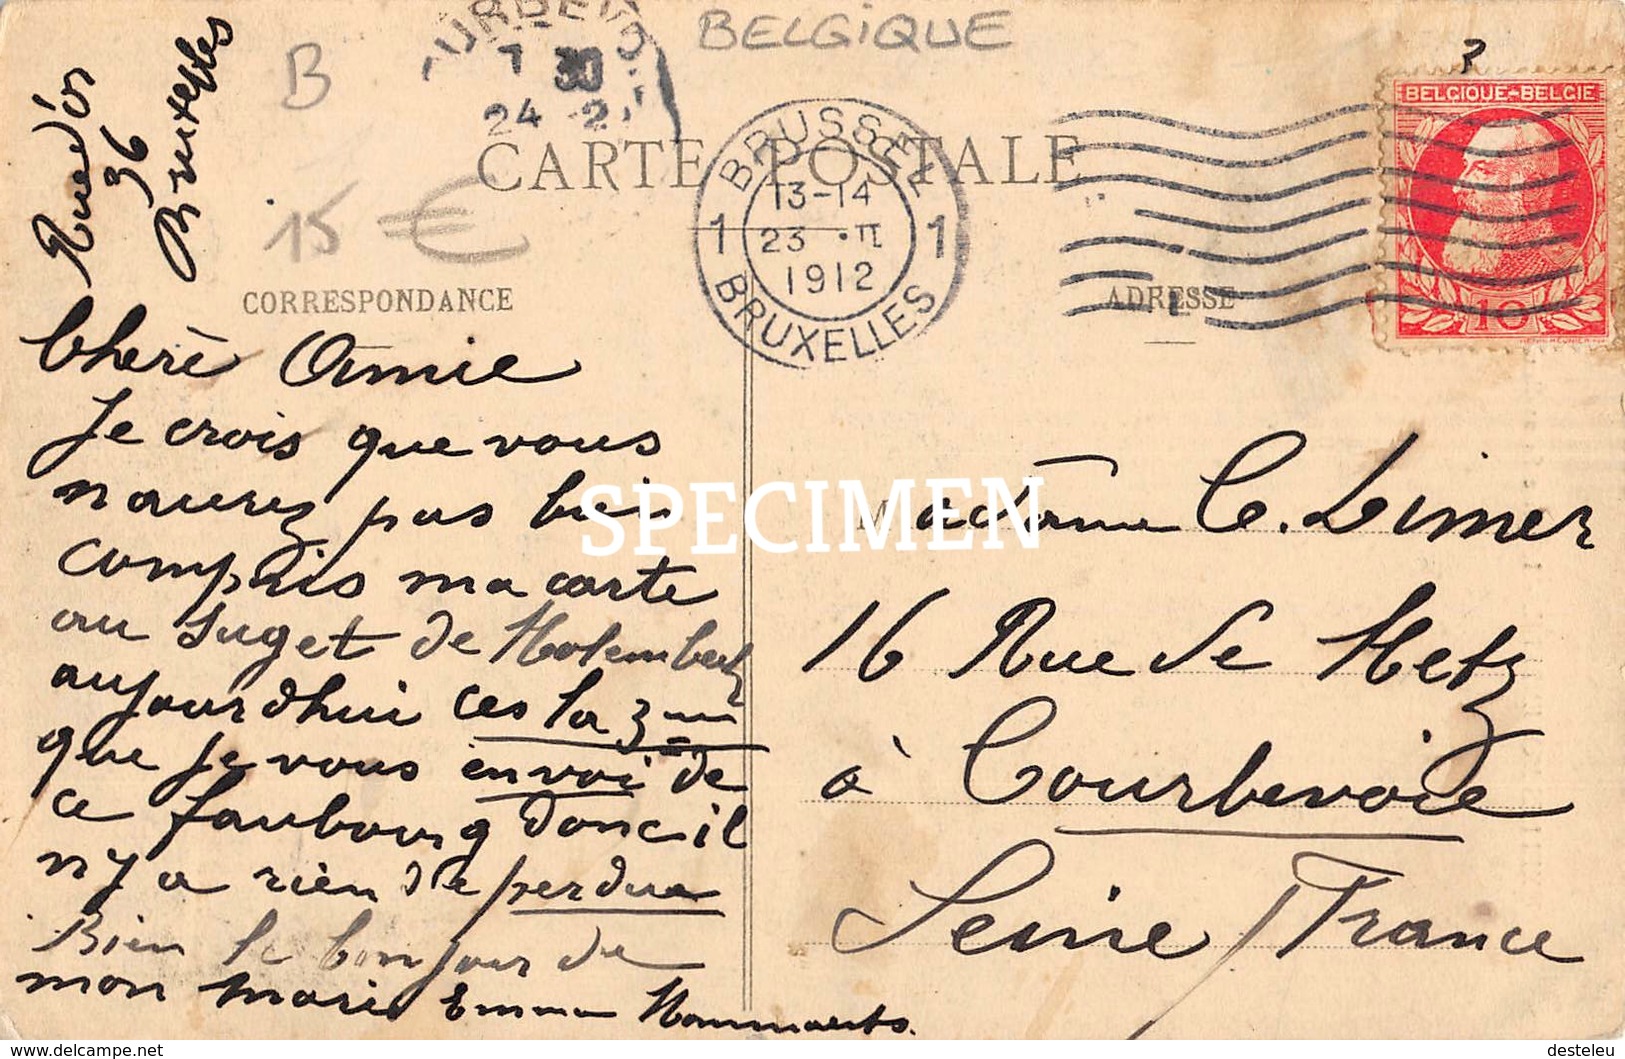 BELGIQUE
B
7 30
24 2
Rue d'or
36
Bruxelles
15 €
CARTE POSTALE
BRUSSEL
13-14
1 23 · II 1
1912
BRUXELLES
BELGIQUE-BELGIE
10
CORRESPONDANCE
ADRESSE
Cherè Amie
Je crois que vous
naurez pas bien
compris ma carte
au suget de Molembeek
aujourdhui ces la 3me
que je vous envoi de
ce faubourg donc il
n'y a rien de perdue
Bien le bonjour de
mon mari Emma Hammaerts.
Madame C. Limer
16 Rue de Metz
à Courbevoie
Seine / France
SPECIMEN
delcampe.net
desteleu